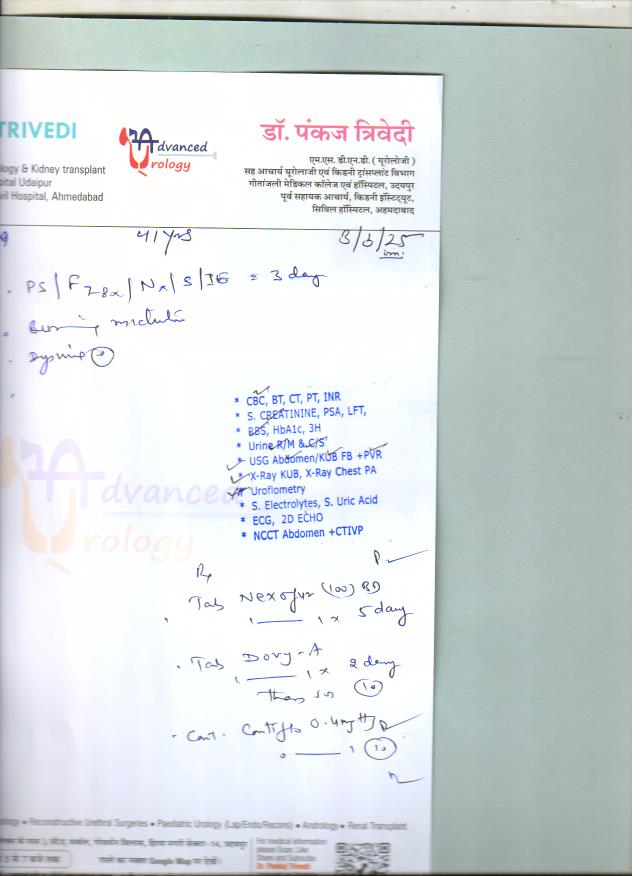 TRIVEDI
ology & Kidney transplant
pital Udaipur
vil Hospital, Ahmedabad
Advanced
Urology
डॉ. पंकज त्रिवेदी
एम.एस. डी.एन.डी. ( यूरोलोजी )
सह आचार्य यूरोलाजी एवं किडनी ट्रांसप्लांट विभाग
गीतांजली मेडिकल कॉलेज एवं हॉस्पिटल, उदयपुर
पूर्व सहायक आचार्य, किडनी इंस्टिट्यूट,
सिविल हॉस्पिटल, अहमदाबाद
41 Yrs
3/6/25
3 day
Burning micturition
* CBC, BT, CT, PT, INR
* S. CREATININE, PSA, LFT,
* BBS, HbA1c, 3H
* Urine R/M & C/S
* USG Abdomen/KUB FB +PVR
* X-Ray KUB, X-Ray Chest PA
* Uroflometry
* S. Electrolytes, S. Uric Acid
* ECG, 2D ECHO
* NCCT Abdomen +CTIVP
Advanced
Urology
Rx
Tab (100) BD
1 — 1 x 5 day
Tab Dovy-A
1 — 1 x 2 day
10
0.4mg
0 — 1 10
ology • Reconstructive Urethral Surgeries • Paediatric Urology (Lap/Endo/Recons) • Andrology • Renal Transplant
For medical information
please Scan, Like
Share and Subscribe
Dr. Pankaj Trivedi
5 से 7 बजे तक
Google Map पर देखें।